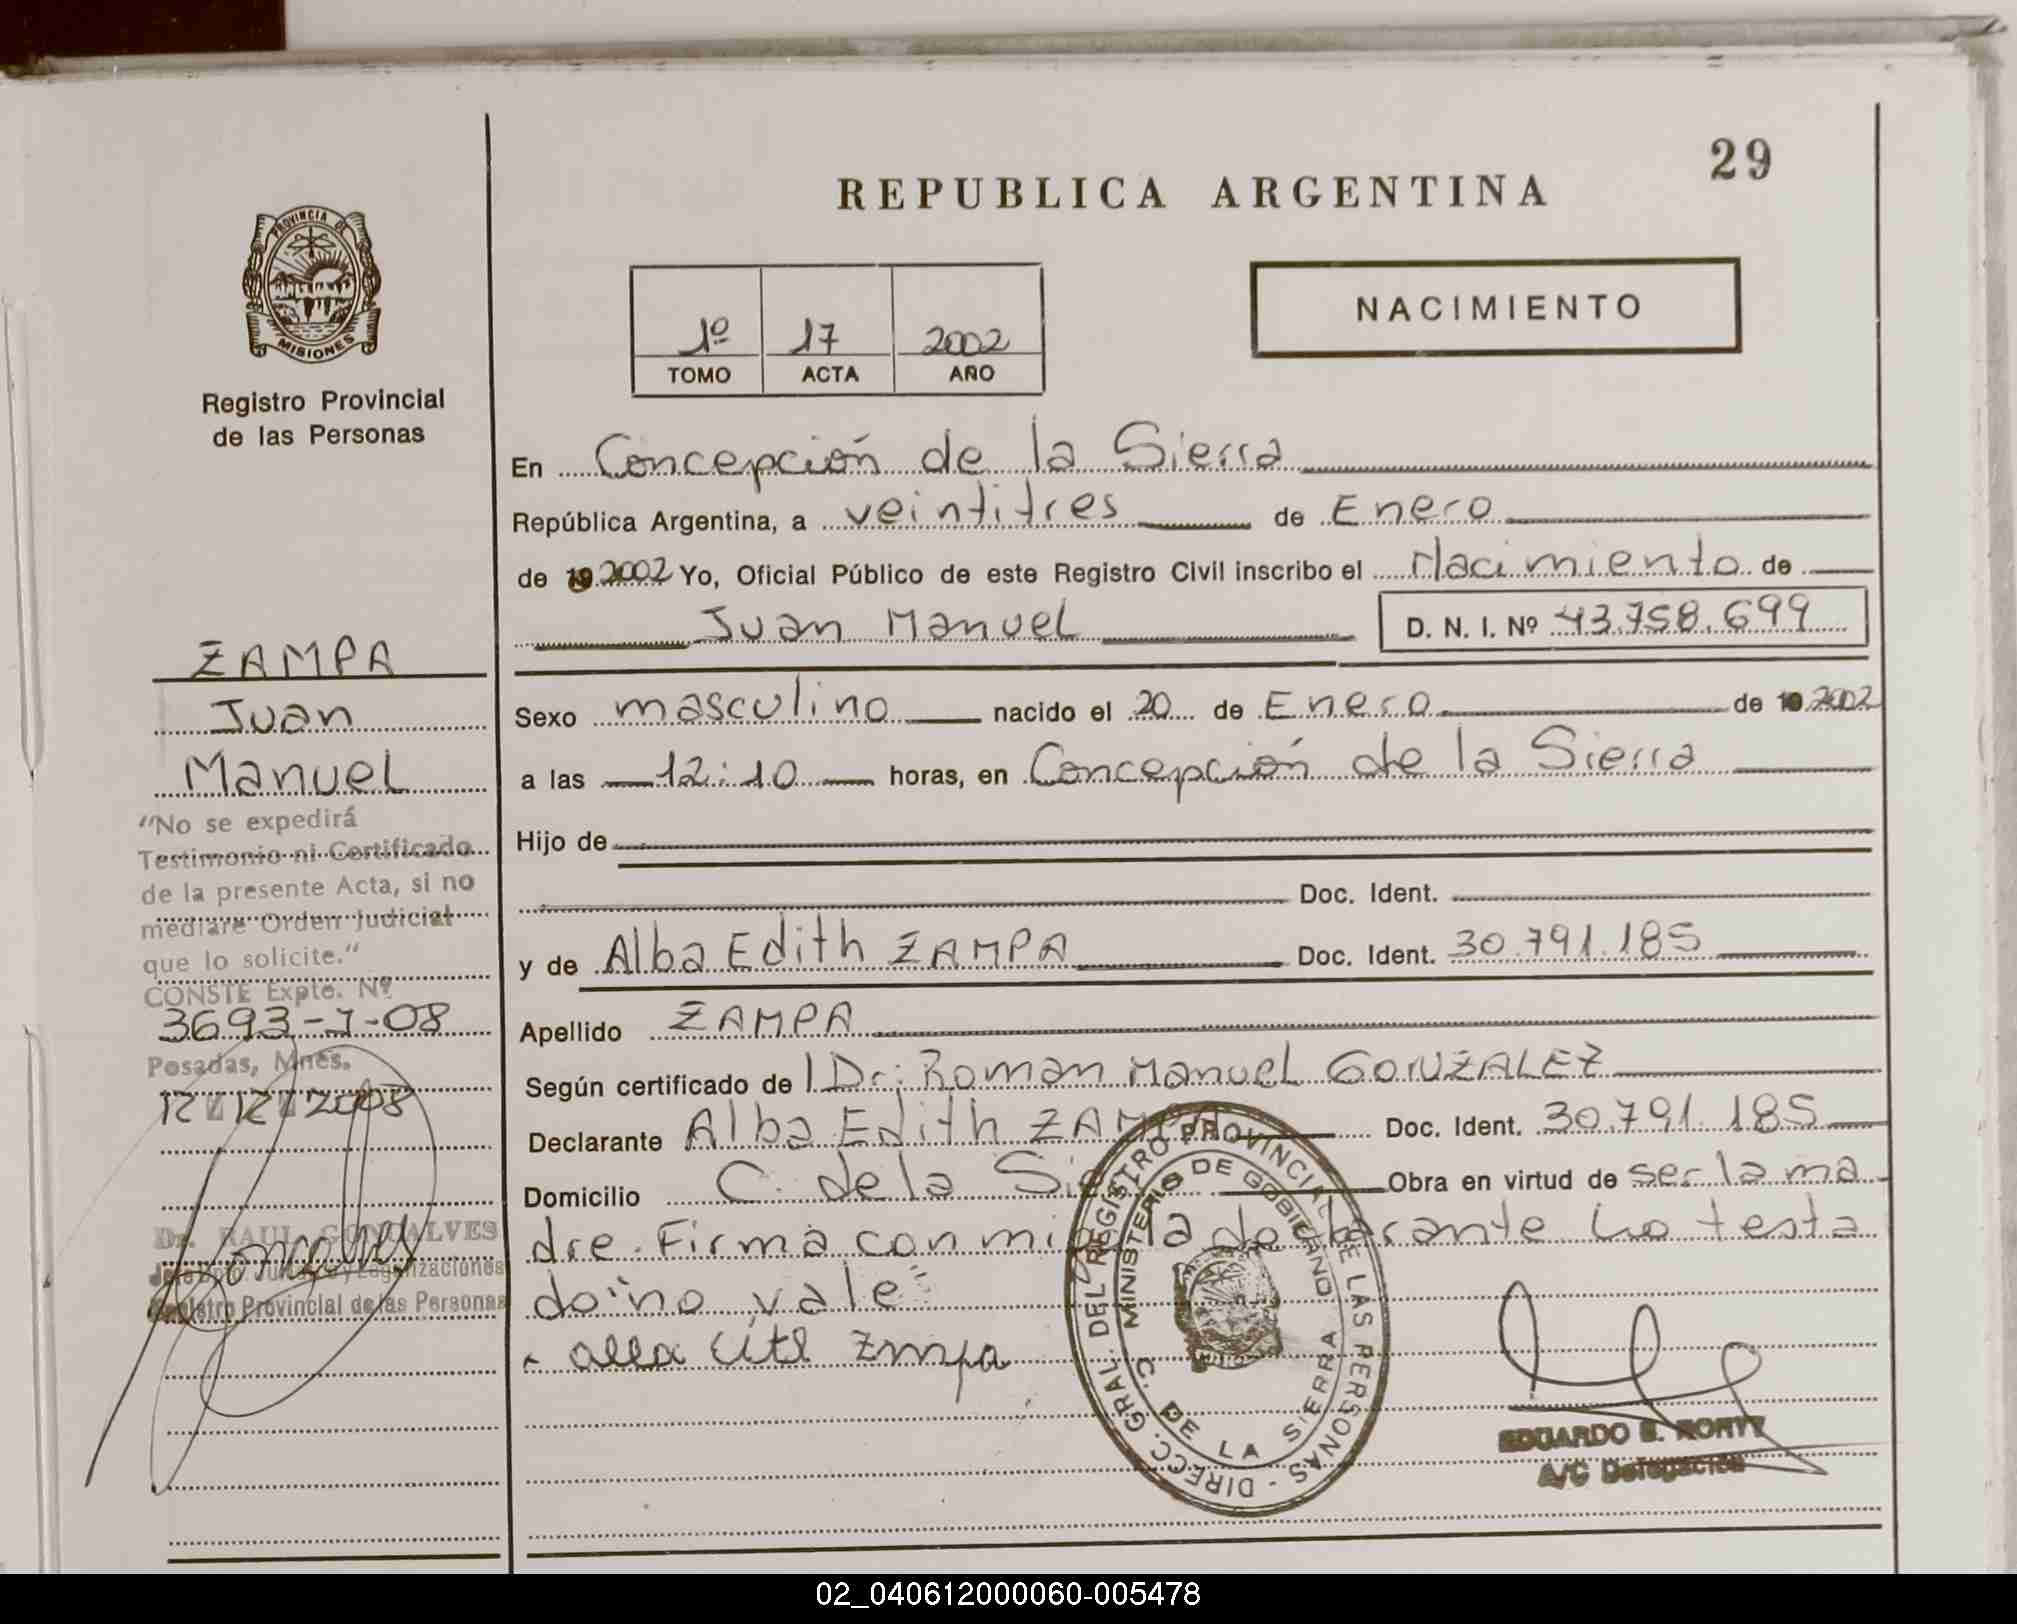 29
REPUBLICA ARGENTINA
PROVINCIA DE
MISIONES
Registro Provincial
de las Personas
1º 17 2002
TOMO ACTA AÑO
NACIMIENTO
En Concepción de la Sierra
República Argentina, a veintitres de Enero
de 19 2002 Yo, Oficial Público de este Registro Civil inscribo el Nacimiento de
Juan Manuel D. N. I. Nº 43.758.699
Sexo masculino nacido el 20 de Enero de 19 2002
a las 12:10 horas, en Concepción de la Sierra
Hijo de
Doc. Ident.
y de Alba Edith ZAMPA Doc. Ident. 30.791.185
Apellido ZAMPA
Según certificado de Dr: Roman Manuel GONZALEZ
Declarante Alba Edith ZAMPA Doc. Ident. 30.791.185
Domicilio C. de la Obra en virtud de ser la ma
dre. Firma con la declarante testa
do: no vale
ZAMPA
Juan
Manuel
"No se expedirá
Testimonio ni Certificado
de la presente Acta, si no
mediare Orden Judicial
que lo solicite."
CONSTE Expte. Nº
3693-7-08
Posadas, Mnes.
12 12 2008
Dr. RAUL GONCALVES
Registro Provincial de las Personas
DIRECC. GRAL. DEL REGISTRO PROVINCIAL DE LAS PERSONAS -
MINISTERIO DE GOBIERNO
C. DE LA SIERRA
EDUARDO
A/C Delegación
02_040612000060-005478